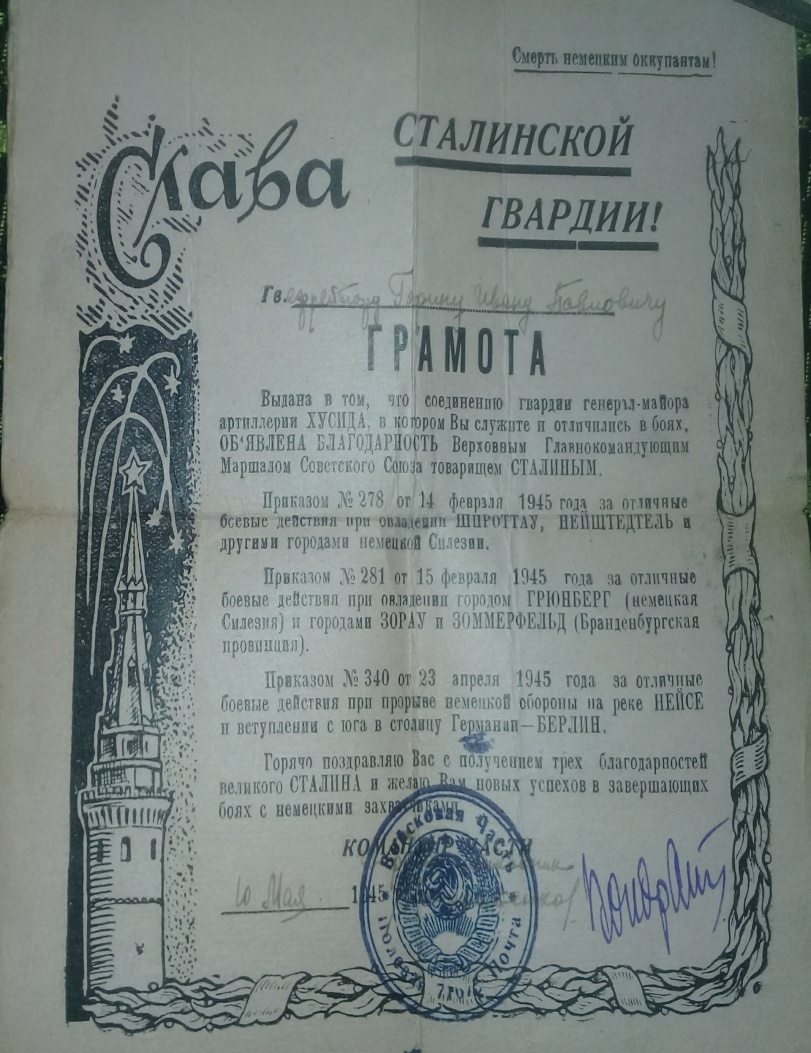 Смерть немецким оккупантам!
Слава
СТАЛИНСКОЙ
ГВАРДИИ!
Гв. ефрейтору Ивану Павловичу
ГРАМОТА
Выдана в том, что соединению гвардии генерал-майора
артиллерии ХУСИДА, в котором Вы служите и отличились в боях,
ОБ‘ЯВЛЕНА БЛАГОДАРНОСТЬ Верховным Главнокомандующим
Маршалом Советского Союза товарищем СТАЛИНЫМ.
Приказом № 278 от 14 февраля 1945 года за отличные
боевые действия при овладении ШПРОТТАУ, НЕЙШТЕДТЕЛЬ и
другими городами немецкой Силезии.
Приказом № 281 от 15 февраля 1945 года за отличные
боевые действия при овладении городом ГРЮНБЕРГ (немецкая
Силезия) и городами ЗОРАУ и ЗОММЕРФЕЛЬД (Бранденбургская
провинция).
Приказом № 340 от 23 апреля 1945 года за отличные
боевые действия при прорыве немецкой обороны на реке НЕЙСЕ
и вступлении с юга в столицу Германии—БЕРЛИН.
Горячо поздравляю Вас с получением трех благодарностей
великого СТАЛИНА и желаю Вам новых успехов в завершающих
боях с немецкими захватчиками.
КОМАНДИР ЧАСТИ
10 Мая 1945
Войсковая Часть
Полевая Почта